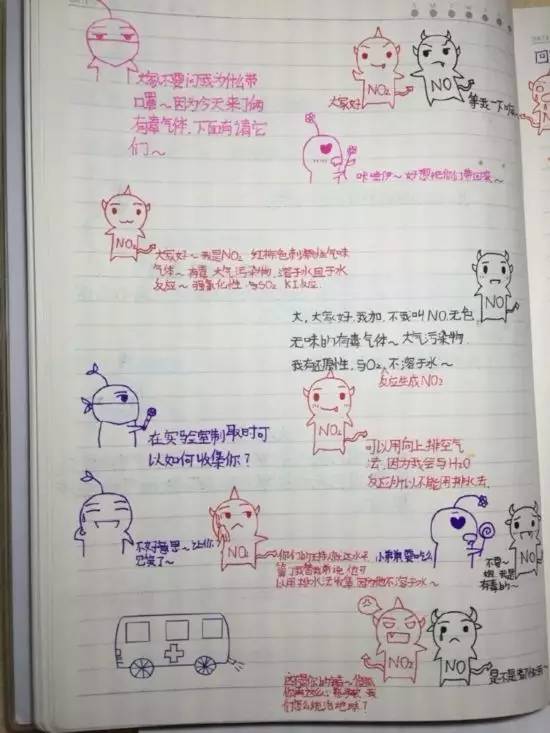 大家不要问我为什么带
口罩~因为今天来了俩
有毒气体,下面有请它
们~
NO₂
NO
大家好
等我一下
咔哇伊~好想把你们带回家~
NO₂
大家好~我是NO₂ 红棕色刺激性气味
气体~有毒,大气污染物,溶于水且于水
反应~强氧化性,与SO₂ KI反应.
NO
大,大家好,我加,不我叫NO.无色
无味的有毒气体~大气污染物
我有还原性,与O₂,不溶于水~
反应生成NO₂
在实验室制取时可
以如何收集你?
NO₂
可以用向上排空气
法,因为我会与H₂O
反应所以不能用排水法.
不好意思~让你
NO₂
你们的主持人
替我弟弟说,他可
以用排水法收集,因为他不溶于水~
小弟弟要吃么
NO
不要~
我是
有毒的~
NO₂
NO
还不是你的错~
我
们怎么统治地球?
是不是